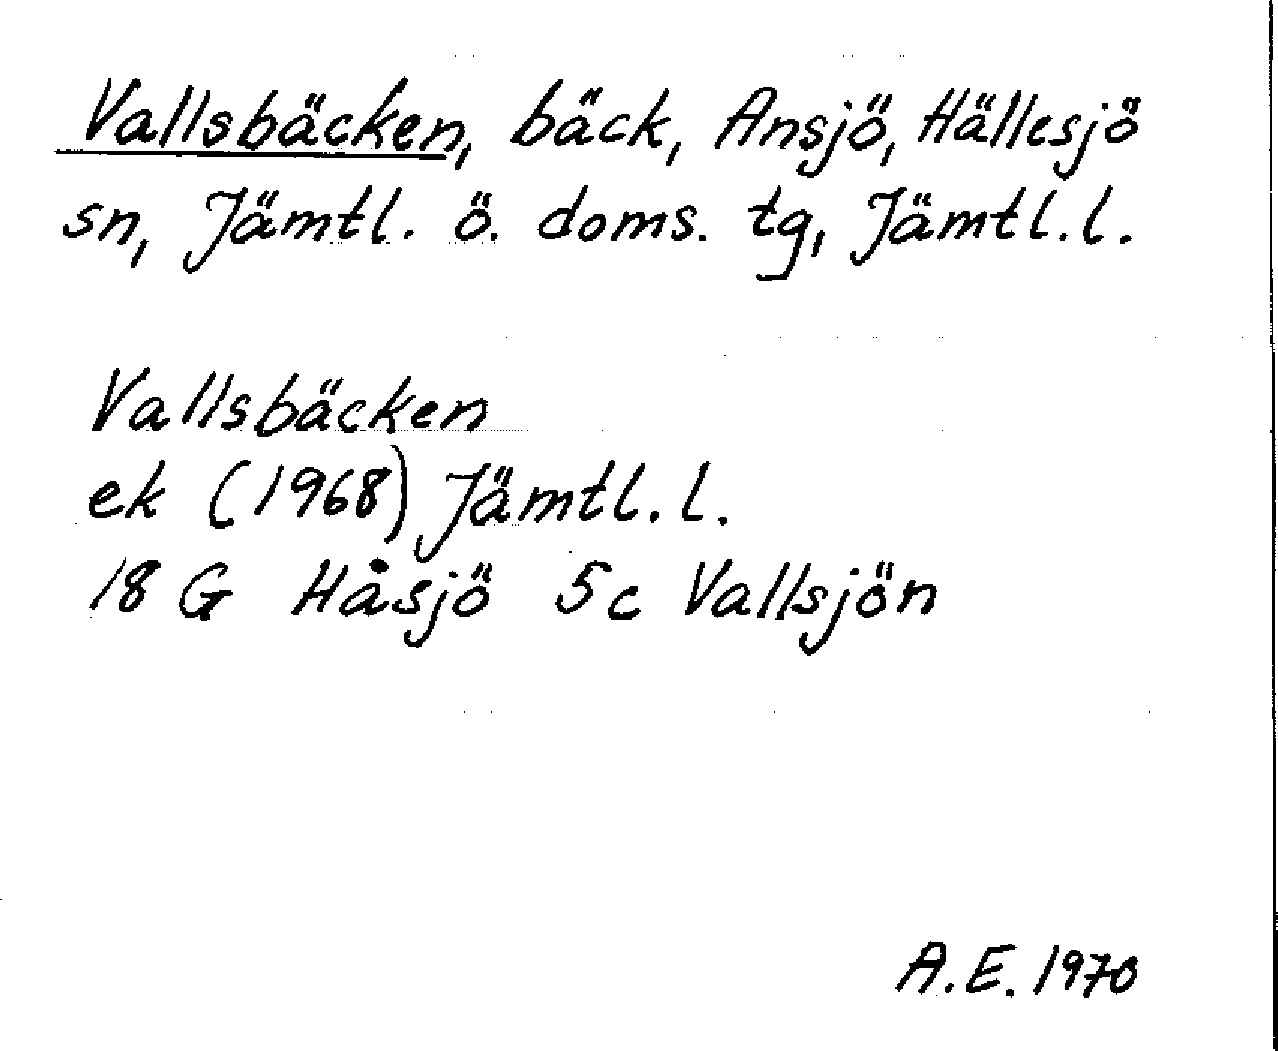 Vallsbäcken, bäck, Ansjö, Hällesjö
sn, Jämtl. ö. doms. tg, Jämtl. l.
Vallsbäcken
ek (1968) Jämtl. l.
18 G Håsjö 5c Vallsjön
A.E. 1970